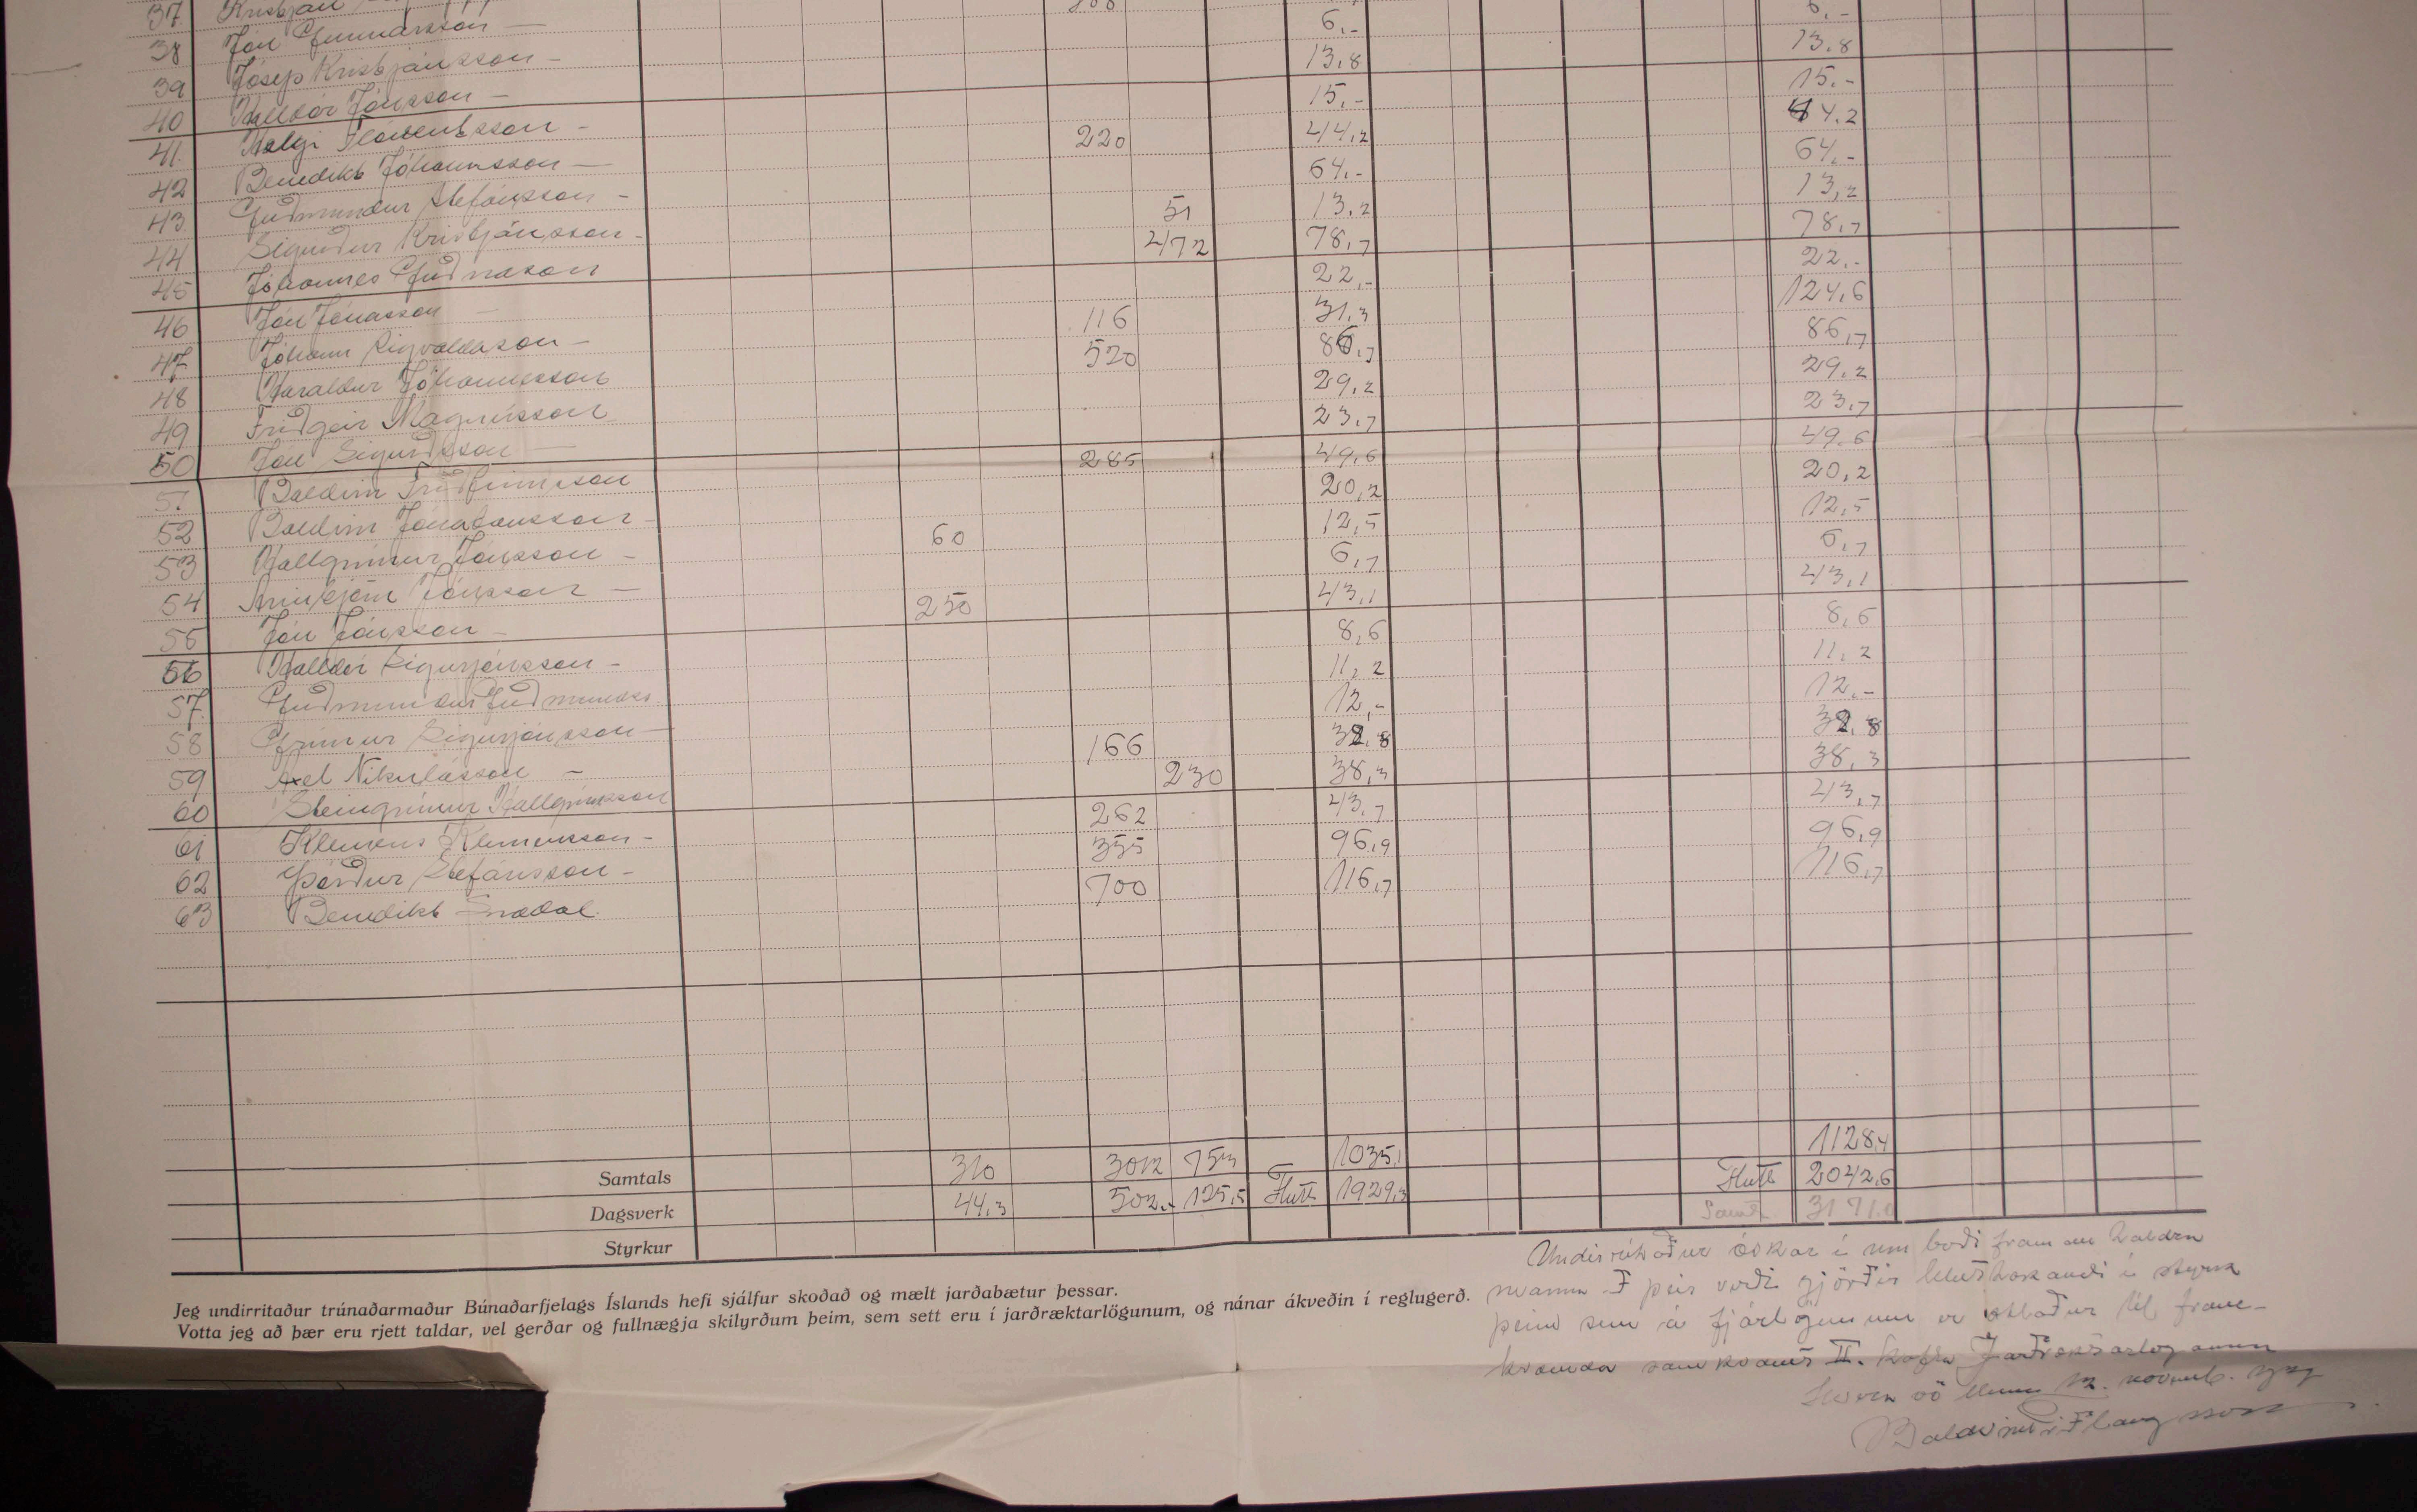 37. Kristján 208
38 Jón Gunnarsson —
39 Jósep Kristjánsson — 6,- 6,-
40 Halldór Jónsson — 13,8 13,8
41. Helgi — 15,- 15,-
42 Benedikt Jóhannsson — 220 44,2 44,2
43. Guðmundur Stefánsson — 64,- 64,-
44 Sigurður Kristjánsson - 51 13,2 13,2
45 Jóhannes Guðnason 472 78,7 78,7
46 Jón Jónasson — 22,- 22,-
47. Jóhann Sigvaldason — 116 31,3 124,6
48 Haraldur Jóhannesson 520 86,7 86,7
49 Friðgeir Magnússon 29,2 29,2
50 Jón Sigurðsson — 23,7 23,7
51 Baldvin Friðfinnsson 285 49,6 49,6
52 Baldvin Jónatansson - 20,2 20,2
53 Hallgrímur Jónsson — 60 12,5 12,5
54 Arinbjörn Jónsson — 6,7 6,7
55 Jón Jónsson — 250 43,1 43,1
56 Halldór Sigurjónsson — 8,6 8,6
57. Guðmundur Guðmundss. 11,2 11,2
58 Grímur Sigurjónsson — 12,- 12,-
59 Axel Nikulásson — 166 32,8 32,8
60 Steingrímur Hallgrímsson 230 38,3 38,3
61 Klemens Klemensson — 262 43,7 43,7
62 Þórður Stefánsson — 355 96,9 96,9
63 Benedikt 700 116,7 116,7
1128,4
Samtals 310 3012 753 1035,1 Flutt 2042,6
Dagsverk 44,3 502,- 125,5 Flutt 1929,3 Samt. 3171,0
Styrkur
Jeg undirritaður trúnaðarmaður Búnaðarfjelags Íslands hefi sjálfur skoðað og mælt jarðabætur þessar.
Votta jeg að þær eru rjett taldar, vel gerðar og fullnægja skilyrðum þeim, sem sett eru í jarðræktarlögunum, og nánar ákveðin í reglugerð.
Undirritaður óskar í um boði fram an taldra
manna að þeir verði gjörðir hluttakandi í styrk
þeim sem á fjárlögunum er ætlaður til fram-
kvæmda samkvæmt II. kafla Jarðræktarlaganna
12. novemb.